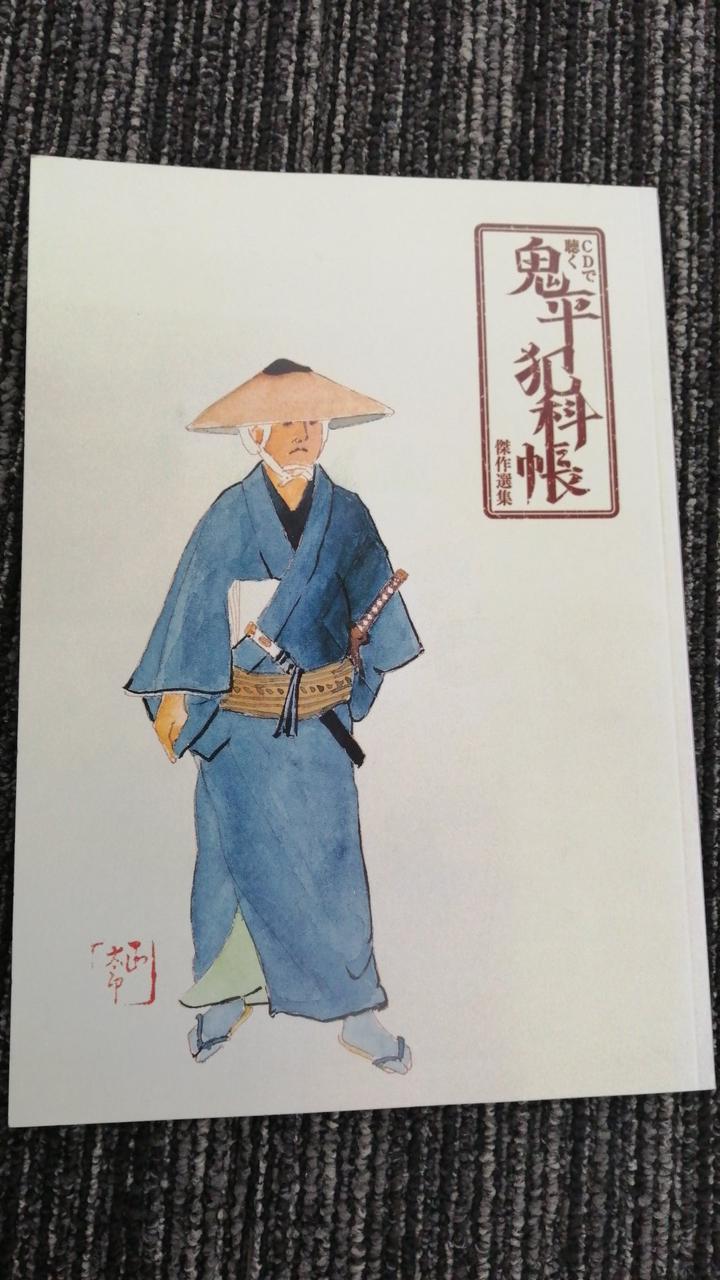 CDで
聴く
鬼平犯科帳
傑作選集
正
太郎